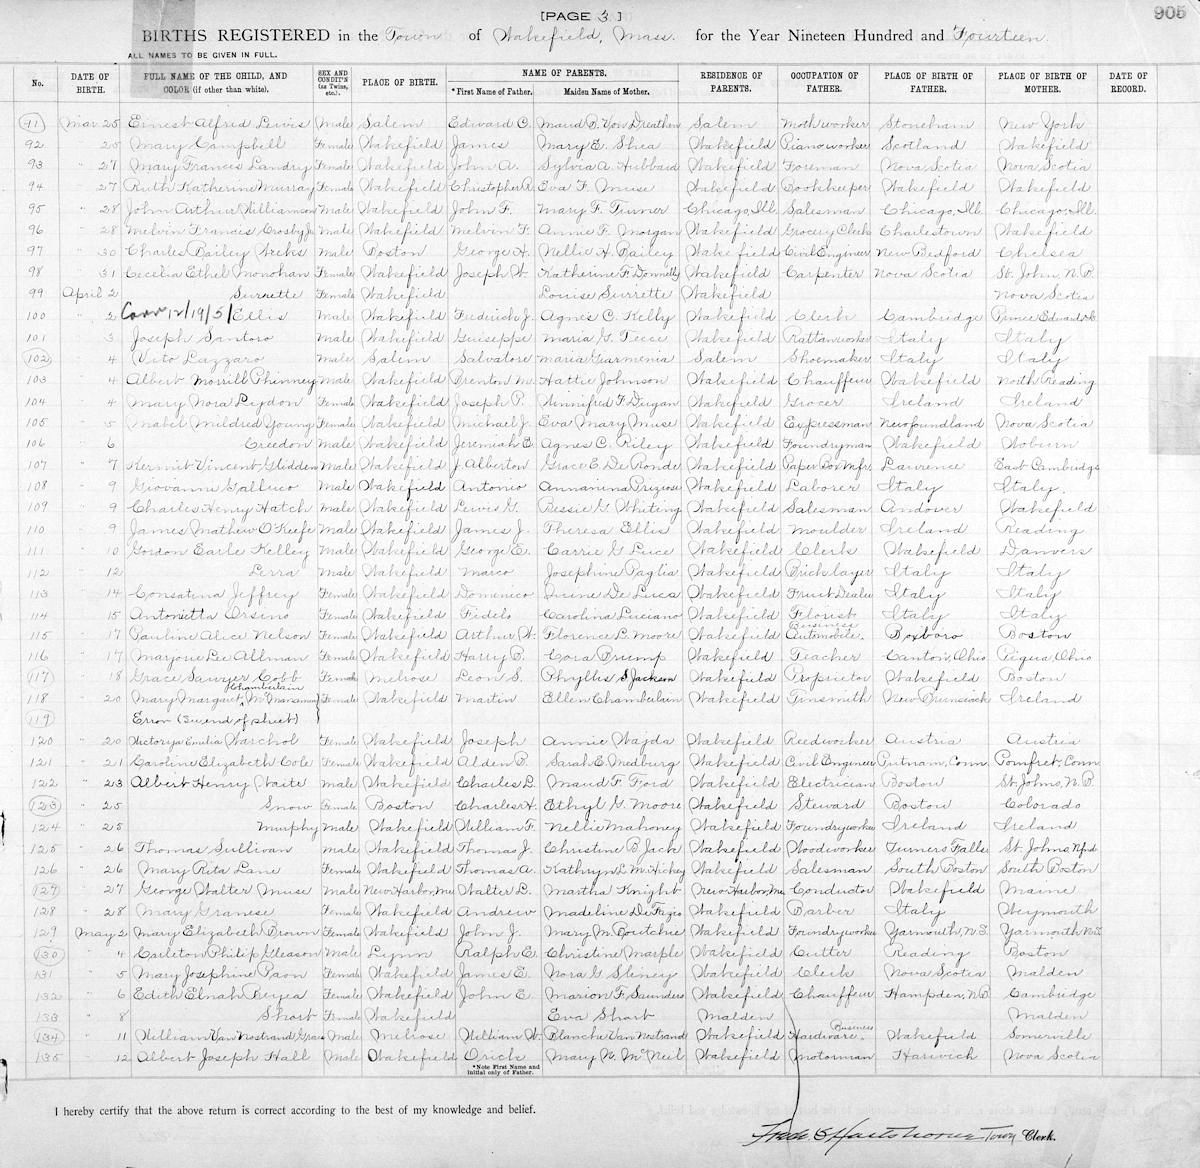 905
[PAGE 3.]
BIRTHS REGISTERED in the Town of Wakefield, Mass. for the Year Nineteen Hundred and Fourteen.
ALL NAMES TO BE GIVEN IN FULL.
No. DATE OF BIRTH. FULL NAME OF THE CHILD, AND COLOR (if other than white). SEX AND CONDIT'N (as Twins, etc.) PLACE OF BIRTH. NAME OF PARENTS. *First Name of Father. Maiden Name of Mother. RESIDENCE OF PARENTS. OCCUPATION OF FATHER. PLACE OF BIRTH OF FATHER. PLACE OF BIRTH OF MOTHER. DATE OF RECORD.
91 Mar 25 Ernest Alfred Lewis Male Salem Edward C. Maud B. Von Dreathen Salem Moth worker Stoneham New York
92 " 25 Mary Campbell Female Wakefield James Mary E. Shea Wakefield Piano worker Scotland Wakefield
93 " 27 Mary Frances Landry Female Wakefield John A. Sylvia A. Hubbard Wakefield Foreman Nova Scotia Nova Scotia
94 " 27 Ruth Katherine Murray Female Wakefield Christopher R. Eva F. Muse Wakefield Bookkeeper Wakefield Wakefield
95 " 28 John Arthur Williamson Male Wakefield John F. Mary F. Turner Chicago, Ill. Salesman Chicago, Ill. Chicago, Ill.
96 " 28 Melvin Francis Crosby Jr Male Wakefield Melvin F. Annie F. Morgan Wakefield Grocery Clerk Charlestown Wakefield
97 " 30 Charles Bailey Weeks Male Boston George H. Nellie H. Bailey Wakefield Civil Engineer New Bedford Chelsea
98 " 31 Cecelia Ethel Monohan Female Wakefield Joseph W. Katherine F. Donnelly Wakefield Carpenter Nova Scotia St. John, N.B.
99 April 2 Surrette Female Wakefield Louise Surrette Wakefield Nova Scotia
100 " 2 Corr 12/19/51 Ellis Male Wakefield Frederick J. Agnes C. Kelly Wakefield Clerk Cambridge Prince Edward Is.
101 " 3 Joseph Santoro Male Wakefield Guiseppe Maria G. Tecce Wakefield Rattan worker Italy Italy
102 " 4 Vito Lazzaro Male Salem Salvatore Maria Giarmenia Salem Shoemaker Italy Italy
103 " 4 Albert Morrill Phinney Male Wakefield Brenton M. Hattie Johnson Wakefield Chauffeur Wakefield North Reading
104 " 4 Mary Nora Lydon Female Wakefield Joseph P. Winnifred F. Durgan Wakefield Grocer Ireland Ireland
105 " 5 Mabel Mildred Young Female Wakefield Michael J. Eva Mary Muse Wakefield Expressman Newfoundland Nova Scotia
106 " 6 Creedon Male Wakefield Jeremiah E. Agnes C. Riley Wakefield Foundryman Wakefield Woburn
107 " 7 Kermit Vincent Glidden Male Wakefield J. Alberton Grace E. De Ronde Wakefield Paper Box Mfr. Laurence East Cambridge
108 " 9 Giovanni Galluco Male Wakefield Antonio Annarina Wakefield Laborer Italy Italy.
109 " 9 Charles Henry Hatch Male Wakefield Lewis G. Bessie G. Whiting Wakefield Salesman Andover Wakefield
110 " 9 James Mathew O'Keefe Male Wakefield James J. Theresa Ellis Wakefield Moulder Ireland Reading
111 " 10 Gordon Earle Kelley Male Wakefield George E. Carrie G. Luce Wakefield Clerk Wakefield Danvers
112 " 12 Lerra Male Wakefield Marco Josephine Paglia Wakefield Bricklayer Italy Italy
113 " 14 Consatina Jeffrey Female Wakefield Domenico De Luca Wakefield Fruit Dealer Italy Italy
114 " 15 Antonietta Orsino Female Wakefield Fidele Carolina Luciano Wakefield Florist Italy Italy
115 " 17 Pauline Alice Nelson Female Wakefield Arthur W. Florence L. Moore Wakefield Automobile Business. Boxboro Boston
116 " 17 Marjorie Lee Allman Female Wakefield Harry B. Cora Brump Wakefield Teacher Canton, Ohio Piqua, Ohio
117 " 18 Grace Sawyer Cobb Female Melrose Leon S. Phyllis S Jackson Wakefield Proprietor Wakefield Boston
118 " 20 Mary Margaret Chamberlain McManamin Female Wakefield Martin Ellen Chamberlain Wakefield Tinsmith New Brunswick Ireland
119 Error (See end of sheet)
120 " 20 Victorya Emilia Warchol Female Wakefield Joseph Annie Wajda Wakefield Reedworker Austria Austria
121 " 21 Caroline Elizabeth Cole Female Wakefield Alden B. Sarah E. Medbury Wakefield Civil Engineer Putnam, Conn. Pomfret, Conn
122 " 23 Albert Henry Waite Male Wakefield Charles L. Maud F. Ford Wakefield Electrician Boston St. Johns, N.B.
123 " 25 Snow Female Boston Charles H. Ethyl G. Moore Wakefield Steward Boston Colorado
124 " 25 Murphy Male Wakefield William F. Nellie Mahoney Wakefield Foundryworker Ireland Ireland
125 " 26 Thomas Sullivan Male Wakefield Thomas J. Christine B. Jack Wakefield Woodworker Turners Falls St. Johns, Nfd
126 " 26 Mary Rita Lane Female Wakefield Thomas A. Kathryn L. McHickey Wakefield Salesman South Boston South Boston
127 " 27 George Walter Muse Male New Harbor, Me Walter L. Martha Knight New Harbor, Me Conductor Wakefield Maine
128 " 28 Mary Granese Female Wakefield Andrew Madeline De Fazio Wakefield Barber Italy Weymouth
129 May 2 Mary Elizabeth Brown Female Wakefield John J. Mary M. Boutchie Wakefield Foundryworker Yarmouth, N.S. Yarmouth N.S.
130 " 4 Carleton Philip Gleason Male Lynn Ralph E. Christine Marple Wakefield Cutter Reading Boston
131 " 5 Mary Josephine Paon Female Wakefield James E. Nora G. Stiney Wakefield Clerk Nova Scotia Malden
132 " 6 Edith Elnah Preyea Female Wakefield John E. Marion F. Saunders Wakefield Chauffeur Hampden, N.B. Cambridge
133 " 8 Short Female Wakefield Eva Short Malden Malden
134 " 11 William Van Nostrand Grace Male Melrose William W. Blanche Van Nostrand Wakefield Hardware Business. Wakefield Somerville
135 " 12 Albert Joseph Hall Male Wakefield Orick Mary N. McNeil Wakefield Motorman Harwich Nova Scotia
*Note First Name and initial only of Father.
I hereby certify that the above return is correct according to the best of my knowledge and belief.
Fred S Hartshorne Town Clerk.